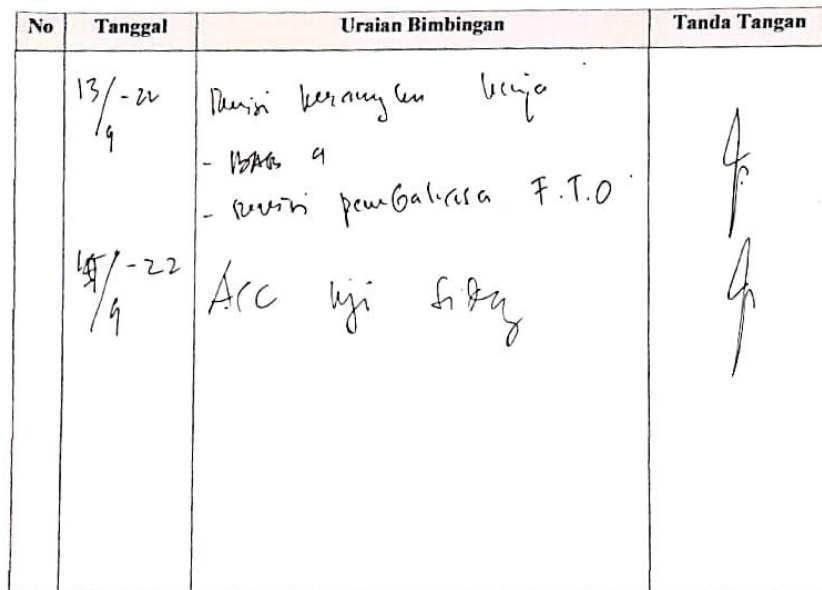 No Tanggal Uraian Bimbingan Tanda Tangan
13/9-22 Revisi kerangka kerja
- BAB 4
- revisi pembahasa F.T.O
/9-22 ACC uji